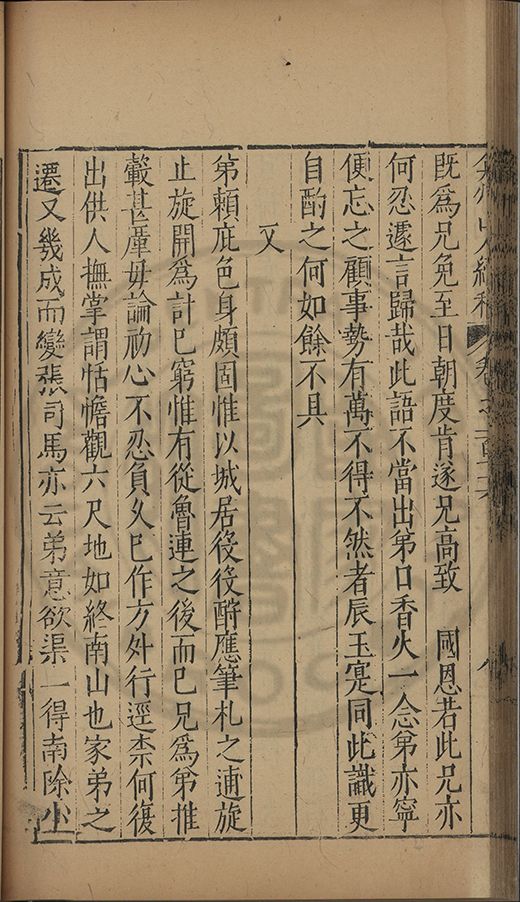 既爲兄免至日朝度肯遂兄高致　國恩若此兄亦
何忍遽言歸哉此語不當出第口香火一念第亦寧
便忘之顧事勢有萬不得不然者辰玉寔同此讖更
自酌之何如餘不具
又
第賴庇色身頗固惟以城居役役酧應筆札之逋旋
止旋開爲計巳窮惟有從魯連之後而巳兄爲第推
轂甚厪毋論初心不忍負夂巳作方外行逕柰何復
出供人撫掌謂恬憺觀六尺地如終南山也家弟之
遷又幾成而變張司馬亦云弟意欲渠一得南除少